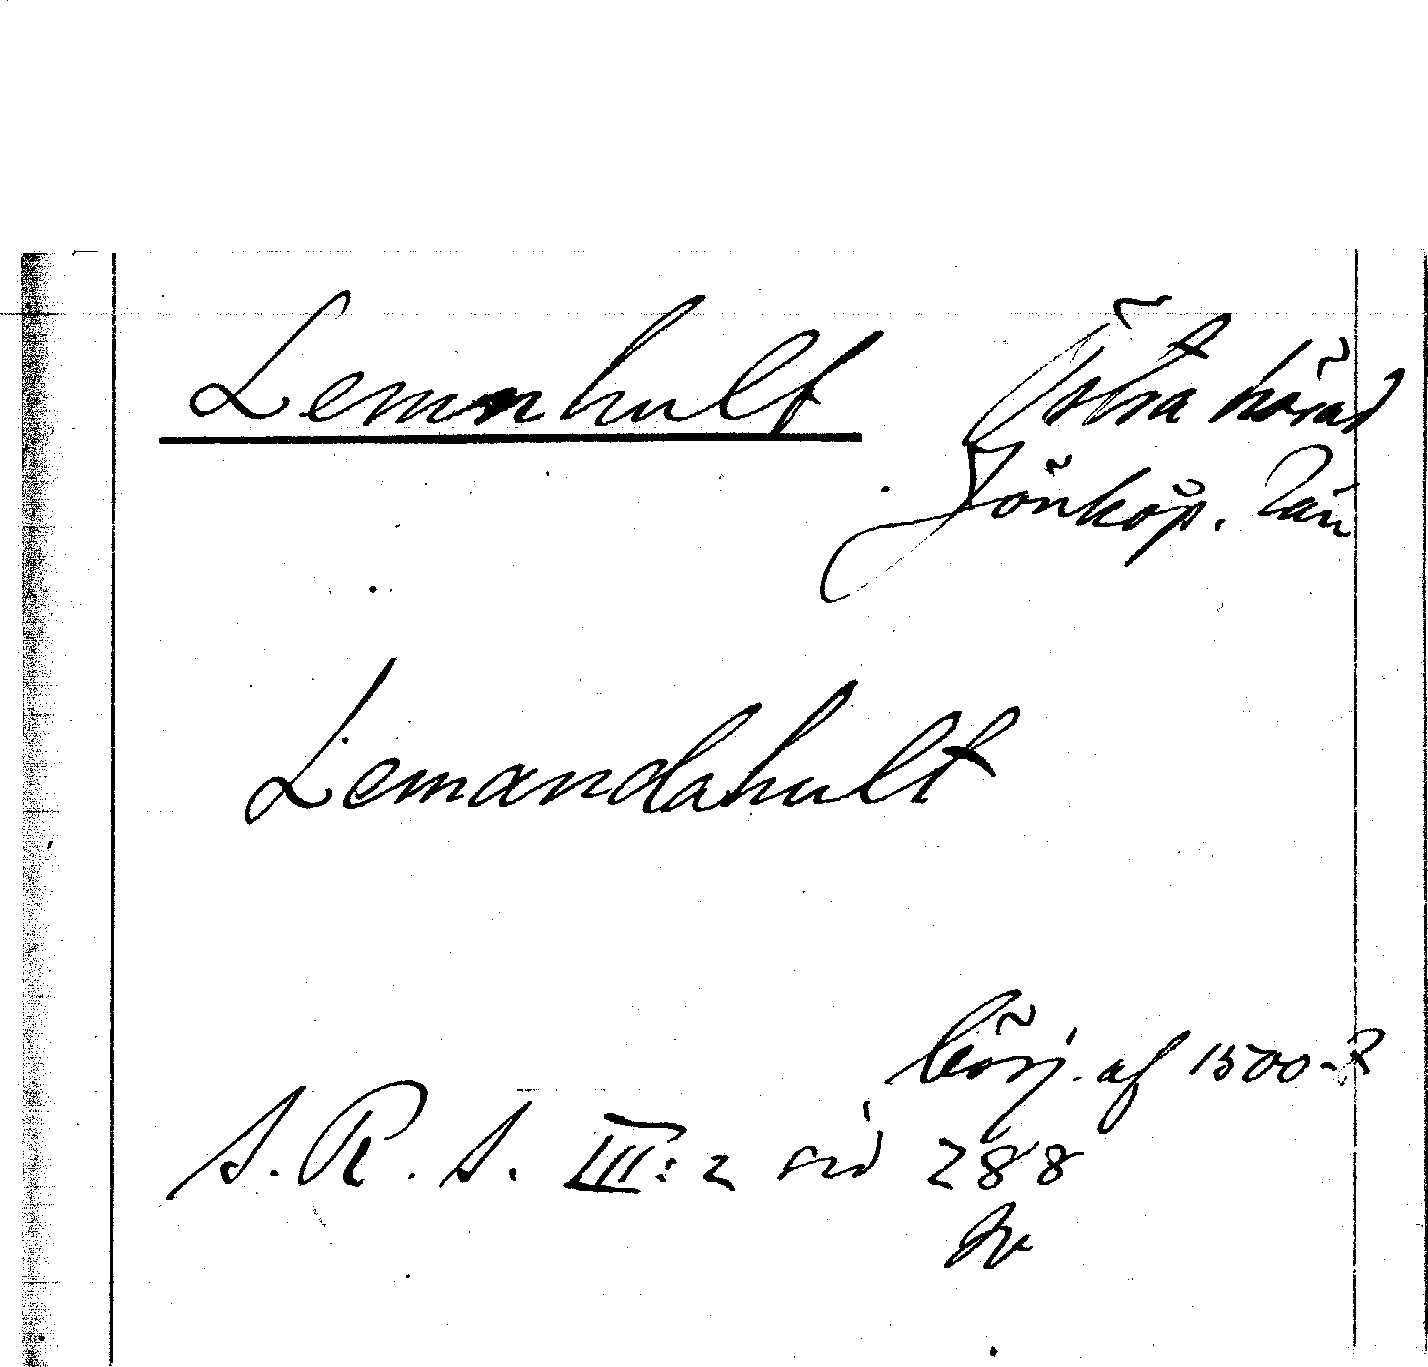 Lemnhult Östra härad
Jönköp. län
Lemandahult
börj. af 1500-t
S. R. S. III: 2 sid 288